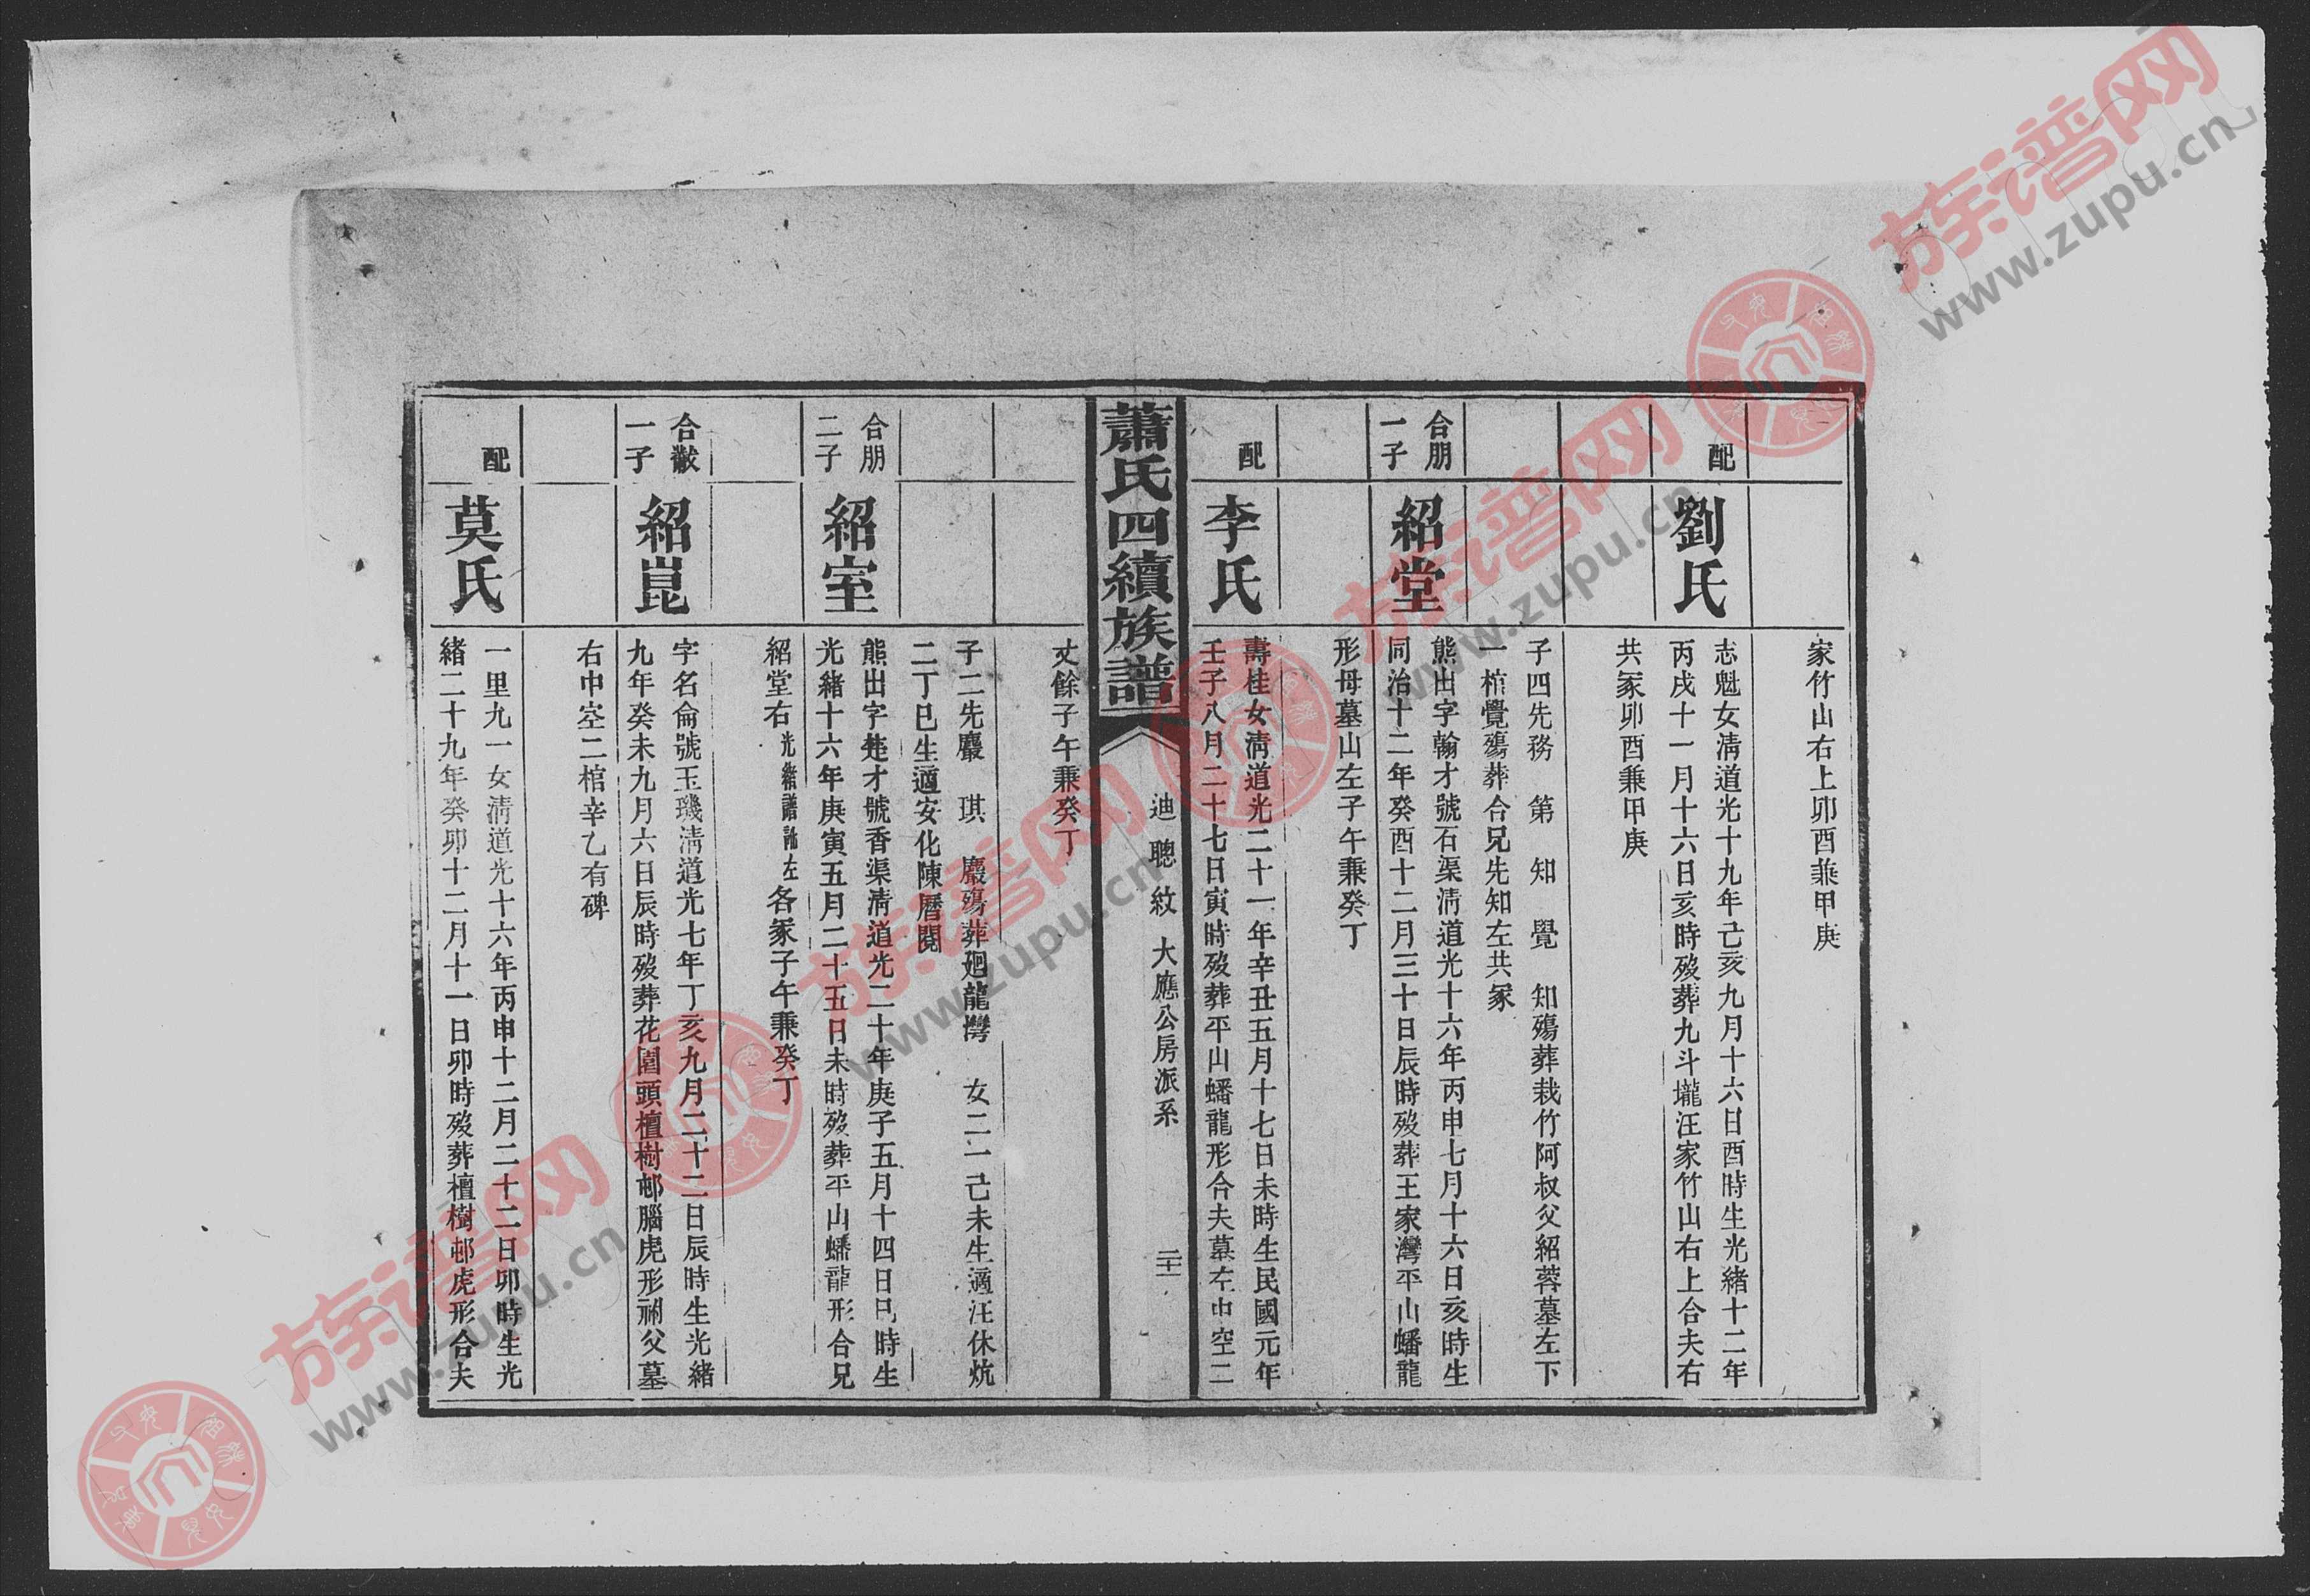 家竹山右上卯酉兼甲庚
配
劉氏
志魁女清道光十九年己亥九月十六日酉時生光緒十二年
丙戌十一月十六日亥時歿葬九斗壠汪家竹山右上合夫右
共冢卯酉兼甲庚
子四先務 第 知 覺 知殤葬栽竹阿叔父紹蓉墓左下
一棺覺殤葬合兄先知左共冢
合朋
一子
紹堂
熊出字翰才號石渠清道光十六年丙申七月十六日亥時生
同治十二年癸酉十二月三十日辰時歿葬王家灣平山蟠龍
形母墓山左子午兼癸丁
配
李氏
壽桂女清道光二十一年辛丑五月十七日未時生民國元年
壬子八月二十七日寅時歿葬平山蟠龍形合夫墓左中空二
蕭氏四續族譜
迪聰紋 大應公房派系
二十一
丈餘子午兼癸丁
子二先麗 琪 麗殤葬廻龍灣 女二一己未生適汪休炕
二丁巳生適安化陳曆閱
合朋
二子
紹室
熊出字楚才號香渠清道光二十年庚子五月十四日巳時生
光緒十六年庚寅五月二十五日未時歿葬平山蟠龍形合兄
紹堂右光緒譜訛左各冢子午兼癸丁
合黻
一子
紹崑
字名侖號玉璣清道光七年丁亥九月二十二日辰時生光緒
九年癸未九月六日辰時歿葬花園頭檀樹邨腦虎形祔父墓
右中空二棺辛乙有碑
配
莫氏
一里九一女清道光十六年丙申十二月二十二日卯時生光
緒二十九年癸卯十二月十一日卯時歿葬檀樹邨虎形合夫
族谱网
www.zupu.cn
族谱网
www.zupu.cn
族谱网
www.zupu.cn
族谱网
www.zupu.cn